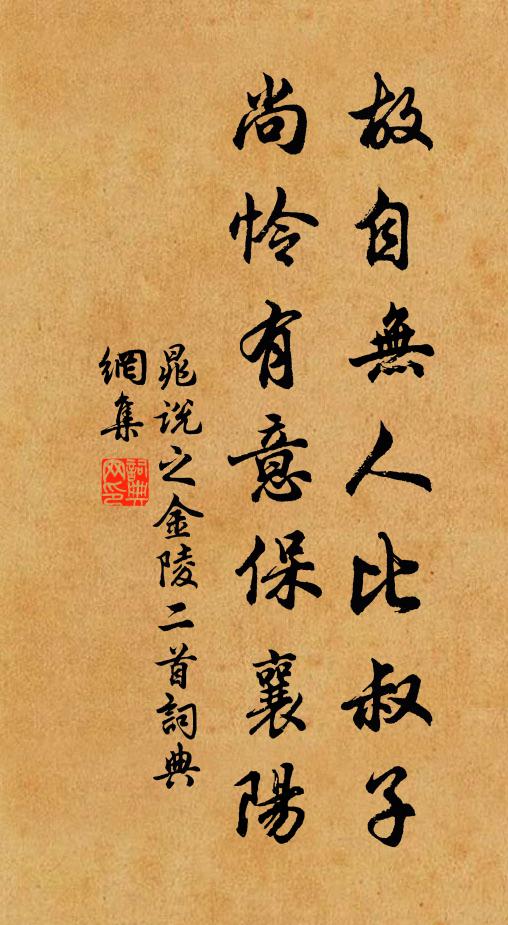 故自無人比叔子
尚怜有意保襄陽
晁説之金陵二首詞典
網集
詞典網印